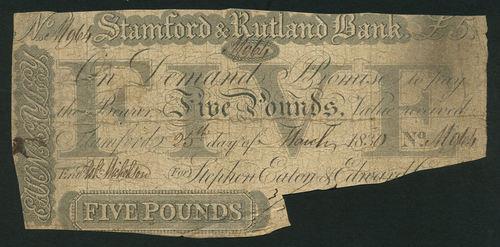 No. M964 Stamford & Rutland Bank. £5
M964
On Demand I Promise to pay
the Bearer Five Pounds, Value received
Stamford 25th day of March 1830 No. M964
Entd. For Stephen Eaton & Edward
FIVE POUNDS
FIVE